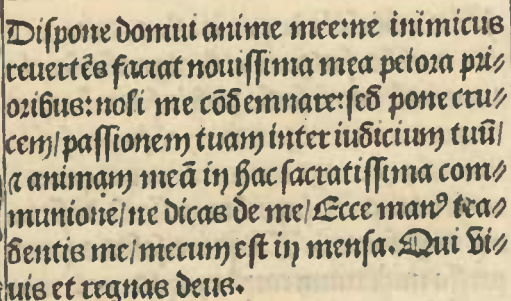 Diſpone domui anime mee:ne inimicus
reuertēs faciat nouiſſima mea peiora pri⸗
oribus: noli me cōdemnare: ſed pone cru⸗
cem/ paſſionem tuam inter iudicium tuū/
⁊ animam meā in hac ſacratiſſima com⸗
munione/ ne dicas de me/ Ecce manꝰ tra⸗
dentis me/ mecum eſt in menſa. Qui vi⸗
uis et regnas deus.